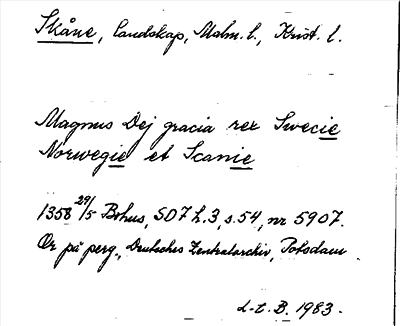 Skåne, landskap, Malm. l., Krist. l.
Magnus Dej gracia rex Swecie
Norwegie et Scanie
1358 29/5 Bohus, SD7 h.3, s.54, nr 5907.
Or på perg., Deutsches Zentralarchiv, Potsdam.
L-E. B. 1983.